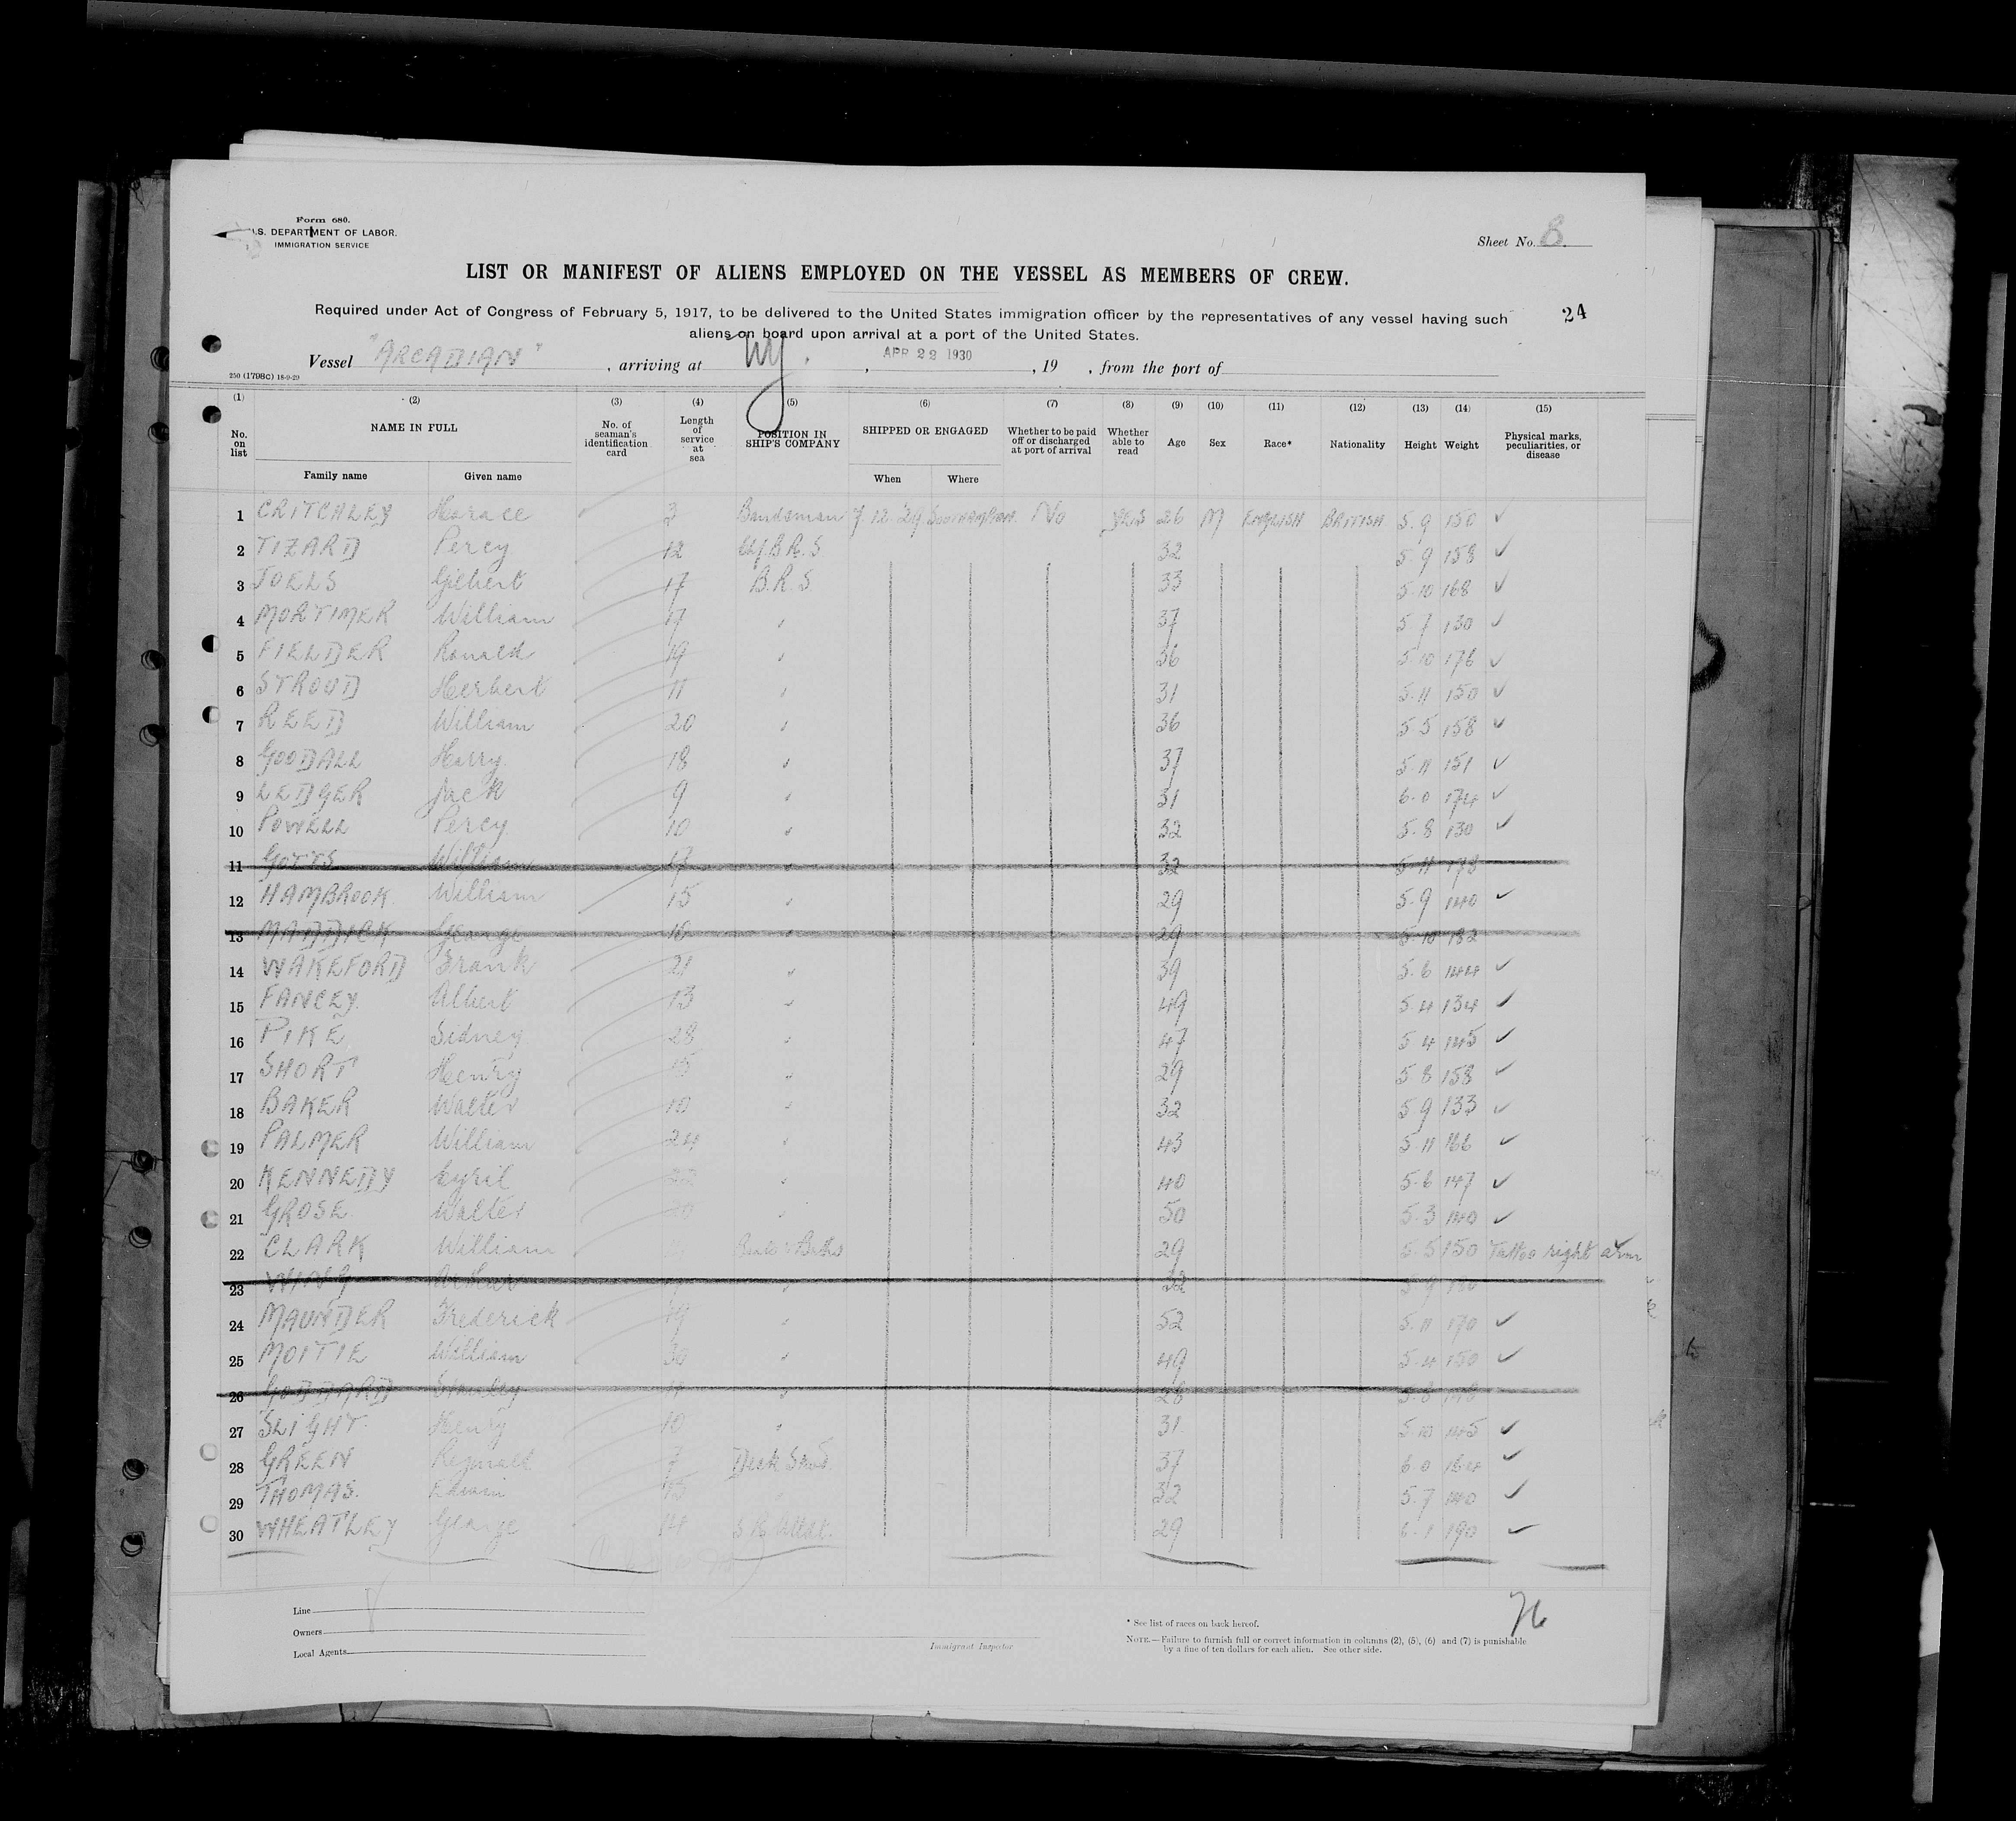 Form 680.
U.S. DEPARTMENT OF LABOR.
IMMIGRATION SERVICE
Sheet No. 8
LIST OR MANIFEST OF ALIENS EMPLOYED ON THE VESSEL AS MEMBERS OF CREW.
Required under Act of Congress of February 5, 1917, to be delivered to the United States immigration officer by the representatives of any vessel having such
aliens on board upon arrival at a port of the United States.
24
Vessel "ARCADIAN", arriving at NY, APR 22 1930, 19 , from the port of
250 (1798C) 18-9-29
(1) (2) (3) (4) (5) (6) (7) (8) (9) (10) (11) (12) (13) (14) (15)
No. on list NAME IN FULL Family name Given name No. of seaman's identification card Length of service at sea POSITION IN SHIP'S COMPANY SHIPPED OR ENGAGED When Where Whether to be paid off or discharged at port of arrival Whether able to read Age Sex Race* Nationality Height Weight Physical marks, peculiarities, or disease
1 CRITCHLEY Horace 3 Bandsman 7.12.29 SOUTHAMPTON No YES 26 M ENGLISH BRITISH 5.9 150 ✓
2 TIZARD Percy 12 Chf B.R.S 32 5 9 158 ✓
3 JOELS Gilbert 17 B.R.S. 33 5.10 168 ✓
4 MORTIMER William 17 37 5 7 130 ✓
5 FIELDER Ronald 19 36 5.10 176 ✓
6 STROUD Herbert 11 31 5.11 150 ✓
7 REED William 20 36 5 5 158 ✓
8 GOODALL Harry 18 37 5.11 151 ✓
9 LEDGER Jack 9 31 6.0 174 ✓
10 POWELL Percy 10 32 5.8 130 ✓
11 GOTTS William 17 32 5 11 173
12 HAMBROOK William 15 29 5.9 140 ✓
13 MADDICK George 16 29 5.10 182
14 WAKEFORD Frank 21 39 5.6 144 ✓
15 FANCEY Albert 13 49 5.4 134 ✓
16 PIKE Sidney 28 47 5 4 145 ✓
17 SHORT Henry 15 29 5 8 158 ✓
18 BAKER Walter 10 32 5 9 133 ✓
19 PALMER William 24 43 5 11 166 ✓
20 KENNEDY Cyril 22 40 5.6 147 ✓
21 GROSE Walter 50 5.3 140 ✓
22 CLARK William 29 5.5 150 Tattoo right arm
23 Arthur 32 5 9
24 MAUNDER Frederick 19 52 5.11 170 ✓
25 MOITIE William 30 49 5.4 150 ✓
26 GODDARD Stanley 28 5.8
27 SLIGHT Henry 10 31 5.10 145 ✓
28 GREEN Reginald 7 Deck Stwd 37 6.0 164 ✓
29 THOMAS Edwin 15 32 5.7 140 ✓
30 WHEATLEY George 14 29 6.1 190 ✓
Line
Owners
Local Agents
Immigrant Inspector
* See list of races on back hereof.
NOTE.—Failure to furnish full or correct information in columns (2), (5), (6) and (7) is punishable
by a fine of ten dollars for each alien. See other side.
26